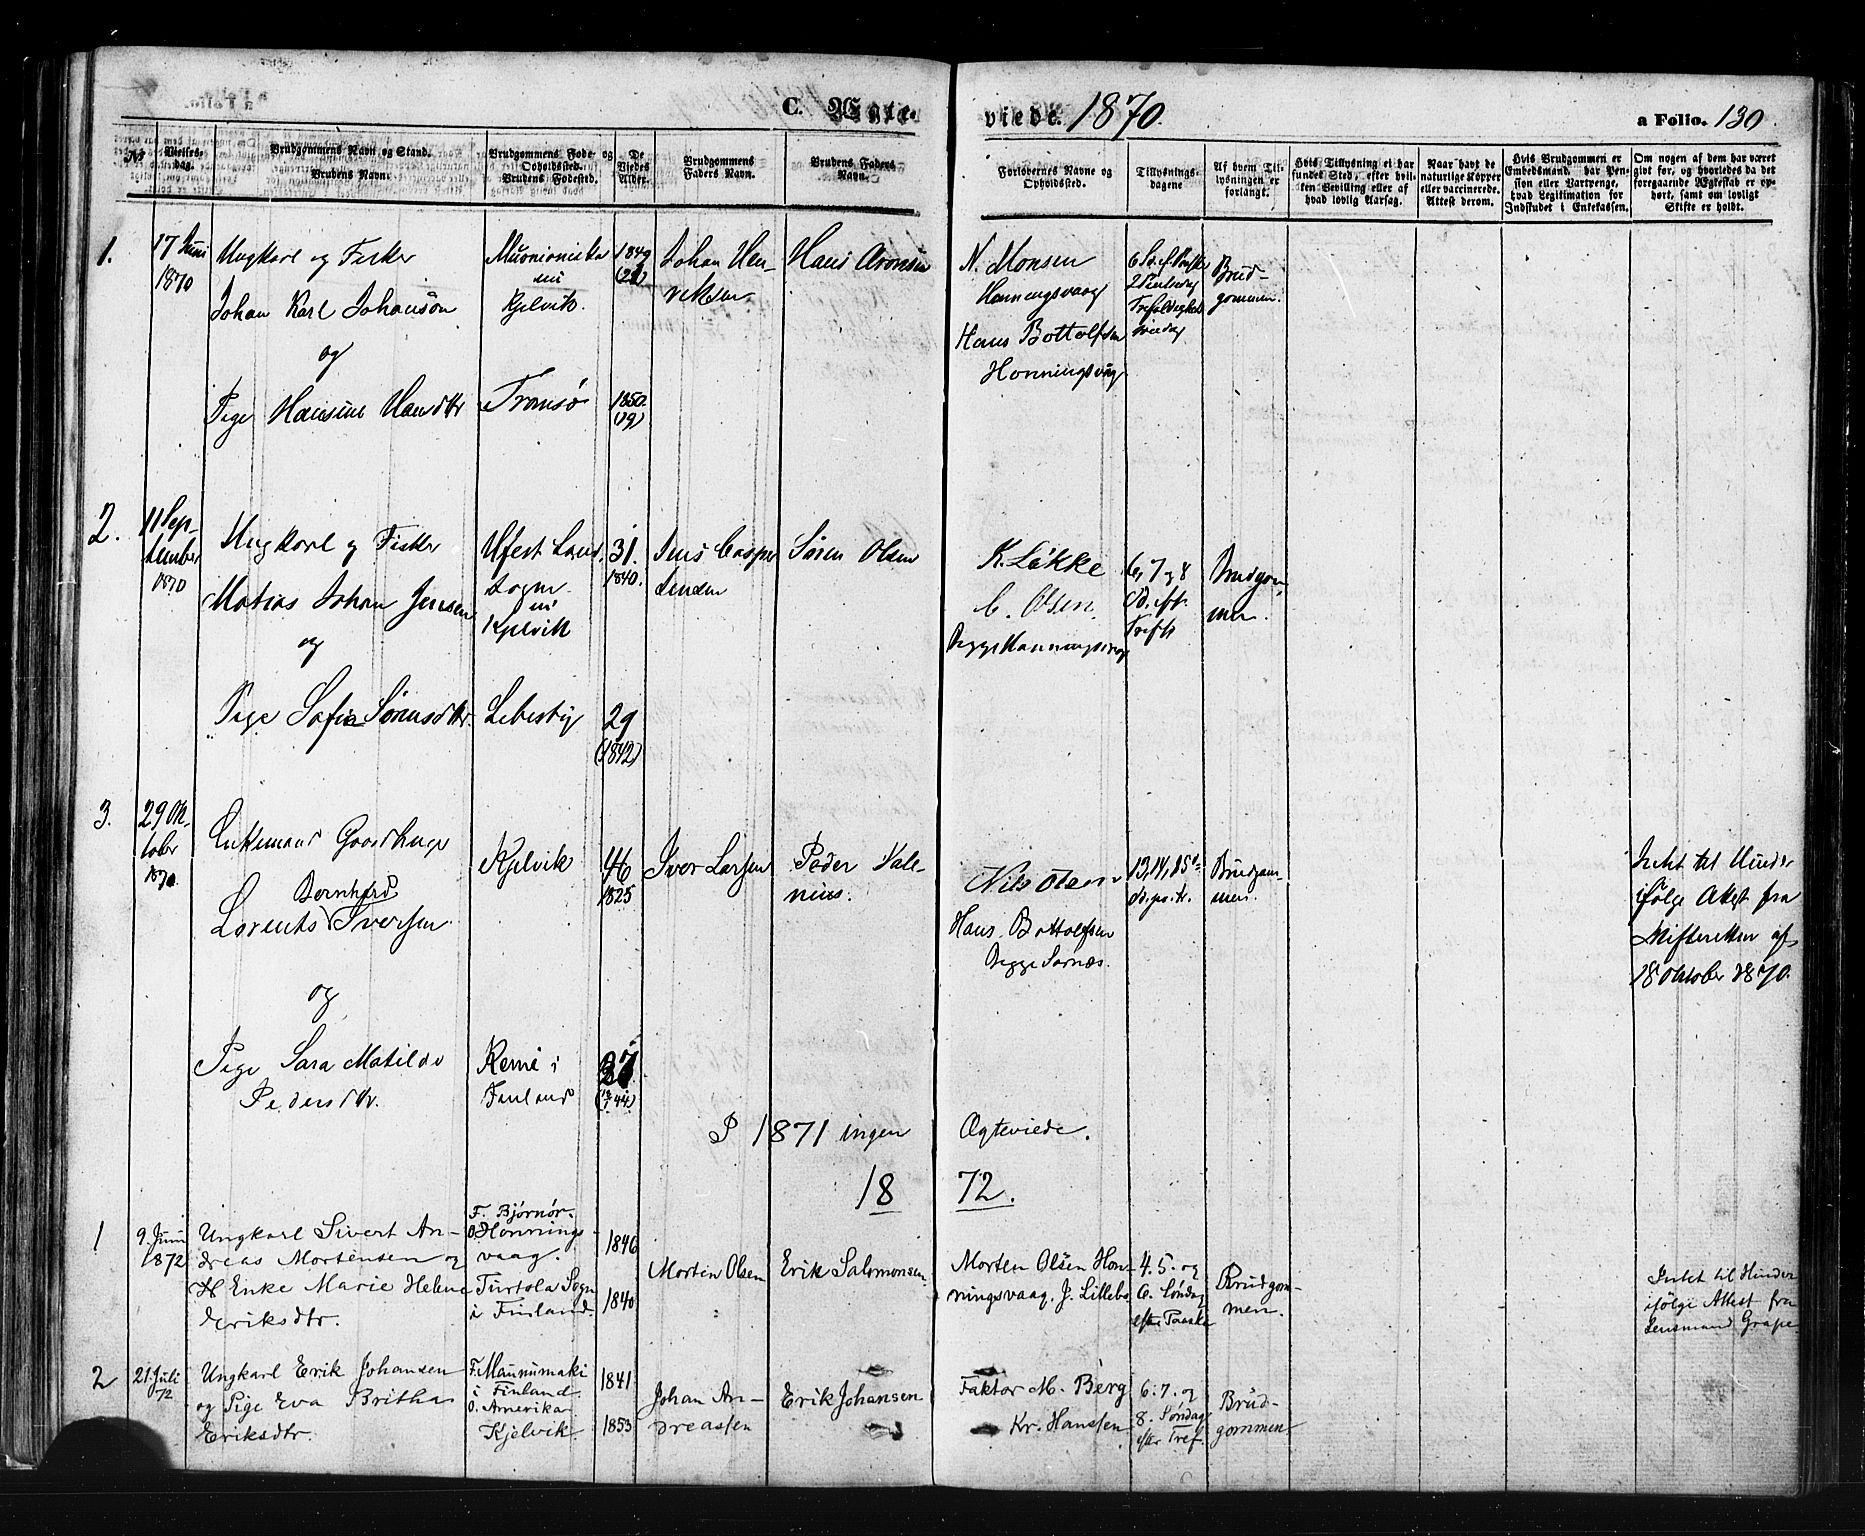 C. Ægte- viede. 1870. a Folio. 130.
№
Vielses-
dag.
Brudgommens Navn og Stand.
Brudens Navn.
Brudgommens Føde- og
Opholdssted.
Brudens Fødested.
De
Viedes
Alder.
Brudgommens
Faders Navn.
Brudens Faders
Navn.
Forlovernes Navne og
Opholdssted.
Tillysnings-
dagene
Af hvem Til-
lysningen er
forlangt.
Hvis Tillysning ei har
fundet Sted, efter hvil-
ken Bevilling eller af
hvad lovlig Aarsag.
Naar havt de
naturlige Kopper
eller vaccinerede.
Attest derom.
Hvis Brudgommen er
Embedsmand, har Pen-
sion eller Vartpenge,
hvad Legitimation for
Indskudet i Enkekassen.
Om nogen af dem har været
gift før, og hvorledes da det
foregaaende Ægteskab er op-
hørt, samt om lovligt
Skifte er holdt.
1.
17 Juni
1870
Ungkarl og Fisker
Johan Karl Johansøn
og
Pige Hansine Hansdtr
Muonioniska
Kjelvik.
Tromsø
1849
(21)
1850.
(19)
Johan Hen-
riksen
Hans Aronsen
N. Monsen
Honningsvaag
Hans Bottolfsen
Honningsvåg
Brud-
gommen.
2.
11 Sep-
tember
1870
Ungkarl og Fisker
Matias Johan Jensen
og
Pige Sofie Sørensdtr.
Sogn
Kjelvik
Lebesby
31.
1840.
29
(1842)
Jens Casper
Jensen
Søren Olsen
K. Løkke
C. Olsen.
Begge Honningsvag
6, 7 og 8
Brudgom-
men.
3.
29 Ok-
tober
1870.
Enkemand
Bernhard
Lorents Iversen
og
Pige Sara Matilde
Pedersdtr.
Kjelvik
Kemi i
Finland
46
1825
27
Iver Larsen
Peder Vale-
nius.
Nils Olsen
Hans Bottolfsen
Begge Sarnæs.
13, 14, 15de
Brudgom-
men.
Intet til Hinder
ifølge Attest fra
Skifteretten af
18 Oktober 1870.
I 1871 ingen Ægteviede.
18 72.
1
9. Juni
1872
Ungkarl Sivert An-
dreas Mortensen og
Enke Marie Helene
Eriksdtr.
F. Bjørnør.
O. Honnings-
vaag.
Turtola Sogn
i Finland.
1846
1840
Morten Olsen
Erik Salomonsen
Morten Olsen Hon-
ningsvaag. J. Lillebo
4. 5. og
6. Søndag
efter Paaske
Brudgom-
men.
Intet til Hinder
ifølge Attest fra
Lensmand Grape.
2
21. Juli
72
Ungkarl Erik Johansen
og Pige Eva Britha
Eriksdtr.
F. Maunumaki
i Finland.
O. Amerika
Kjelvik.
1841
1853
Johan An-
dreassen
Erik Johansen
Faktor M. Berg
Kr. Hanssen
6. 7. og
8. Søndag
efter Tref.
Brud-
gommen